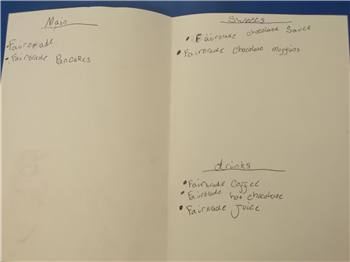 Main
• Fairtrade
• Fairtrade Pancakes
Sweets
• Fairtrade chocolate Sauce
• Fairtrade chocolate muffins
drinks
• Fairtrade Coffee
• Fairtrade hot chocolate
• Fairtrade Juice